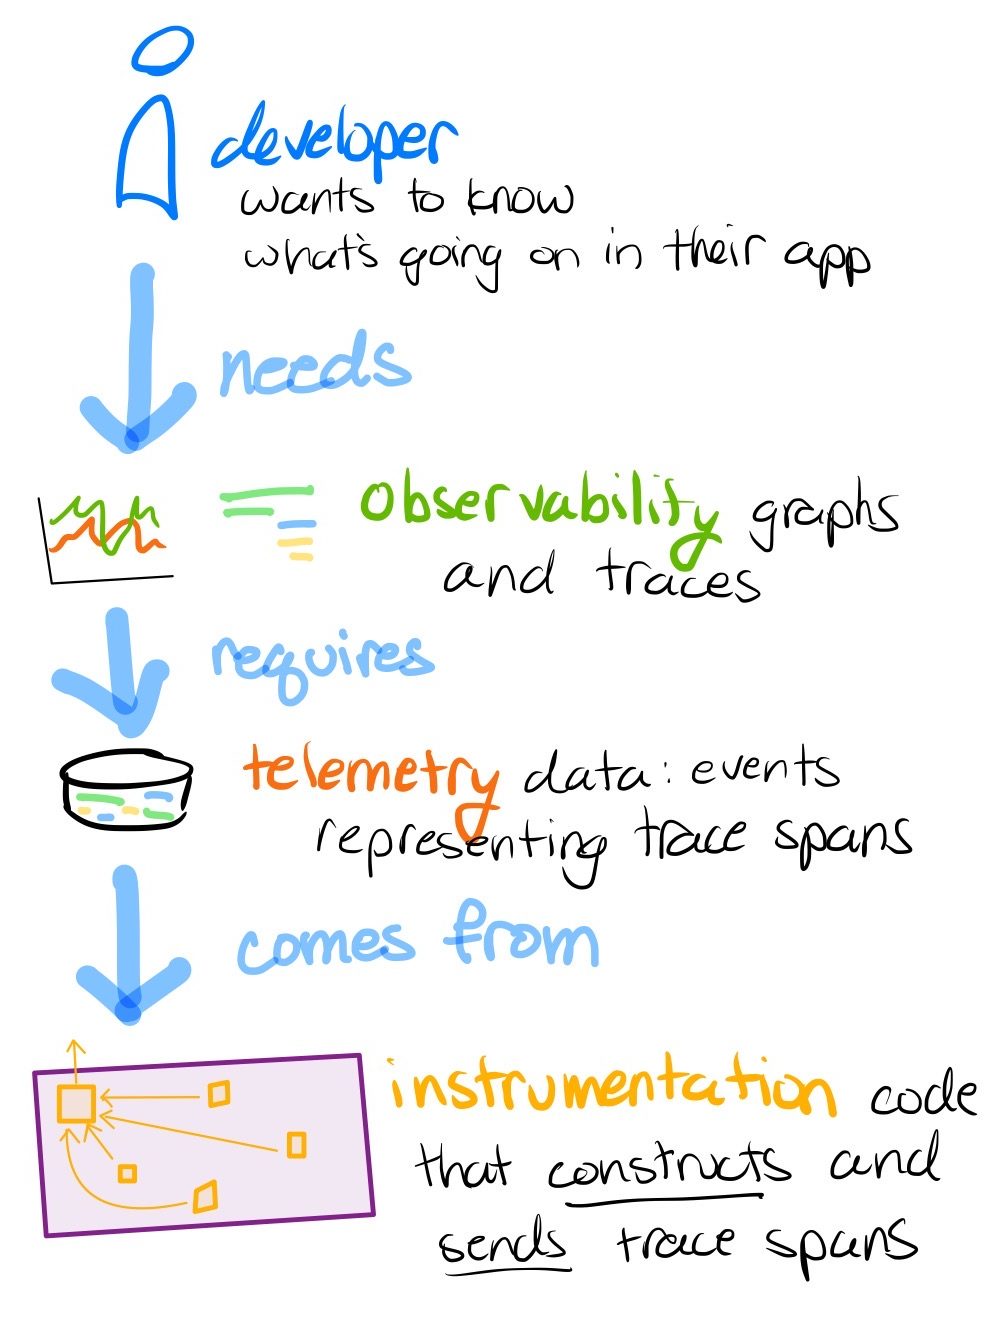 developer
wants to know
what's going on in their app
needs
observability graphs
and traces
requires
telemetry data: events
representing trace spans
comes from
instrumentation code
that constructs and
sends trace spans